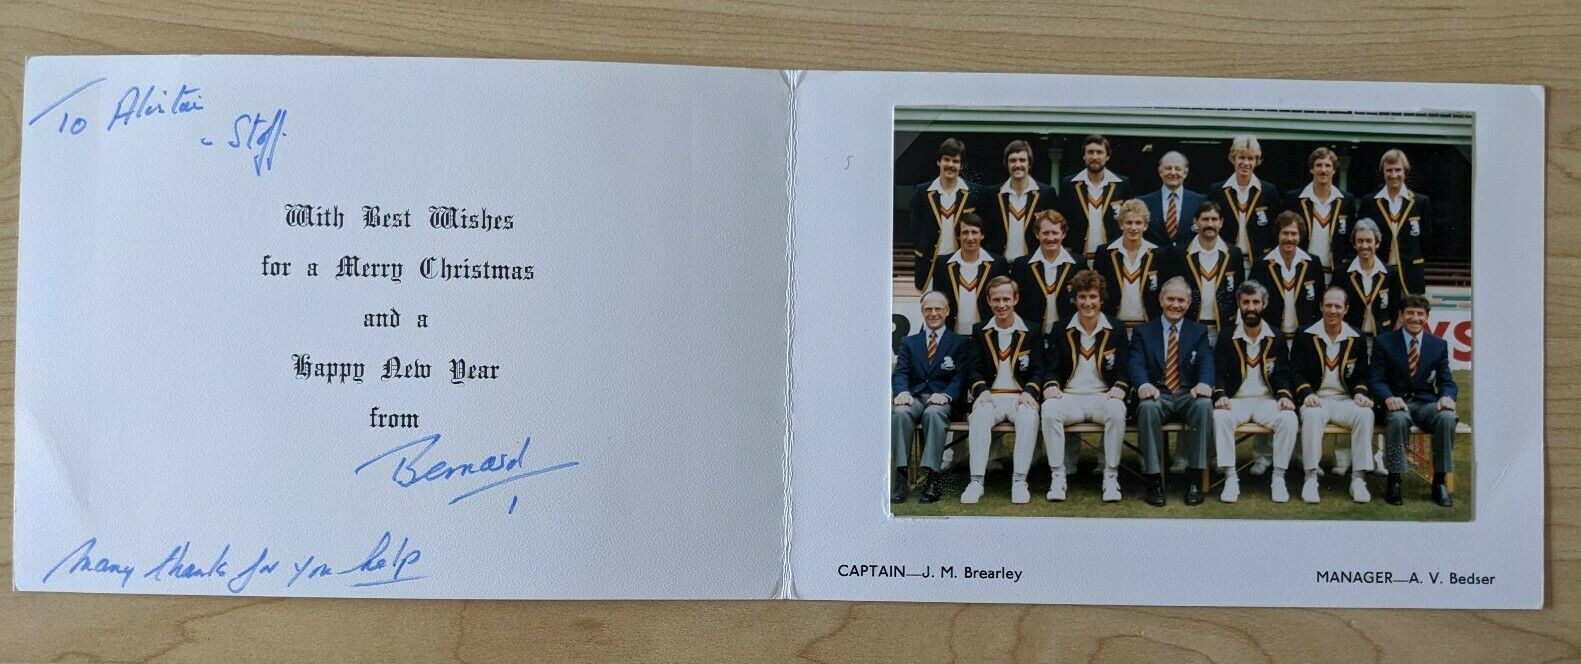 To Alistair
- Staff.
With Best Wishes
for a Merry Christmas
and a
Happy New Year
from
Bernard
Many thanks for you help
CAPTAIN—J. M. Brearley
MANAGER—A. V. Bedser